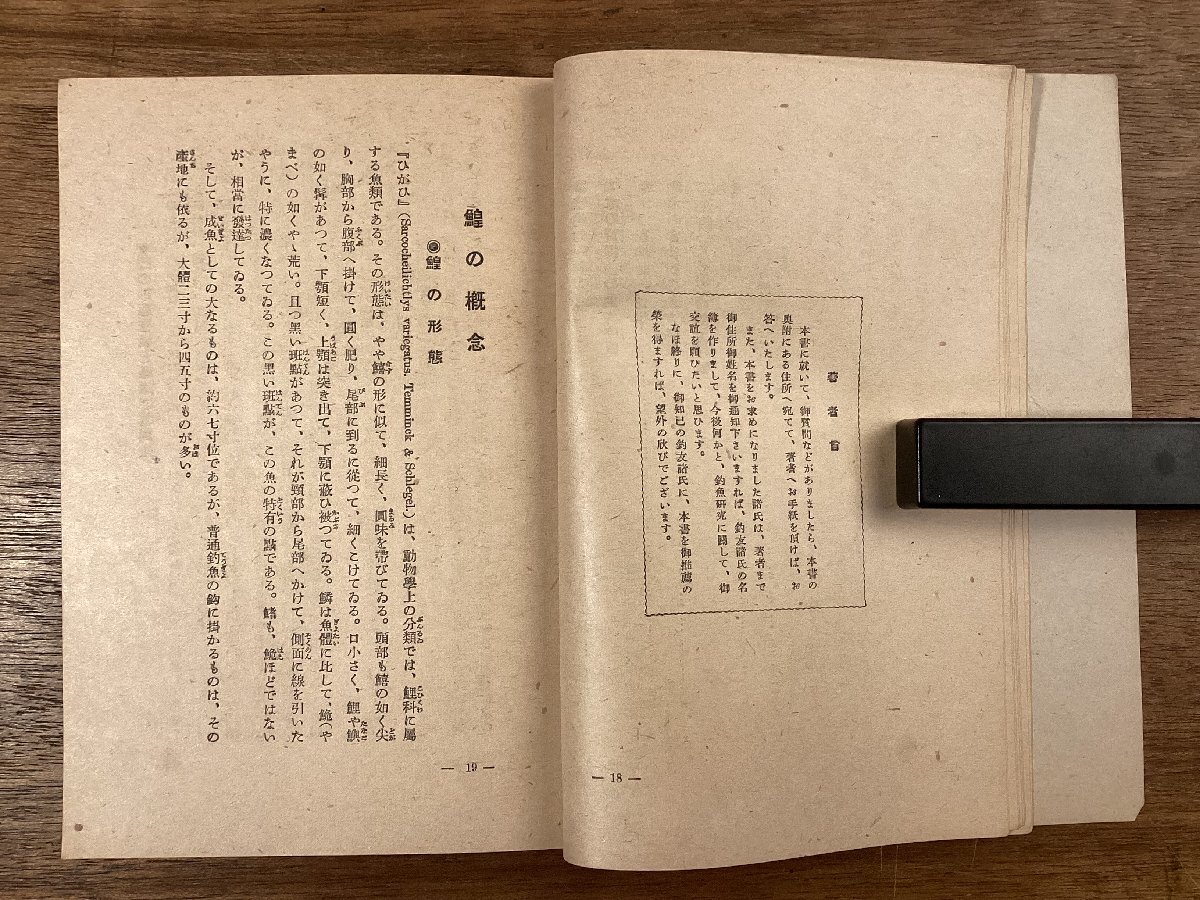 著者言
本書に就いて、御質問などがありましたら、本書の
奥附にある住所へ宛てて、著者へお手紙を頂けば、お
答へいたします。
また、本書をお求めになりました諸氏は、著者まで
御住所御姓名を御通知下さいますれば、釣友諸氏の名
簿を作りまして、今後何かと、釣魚研究に關して、御
交誼を願ひたいと思ひます。
なほ終りに、御知已の釣友諸氏に、本書を御推薦の
榮を得ますれば、望外の欣びでございます。
— 18 —
鰉の概念
◉鰉の形態
『ひがひ』(Sarcocheilichtlys variegatus. Temminck & Schlegel.)は、動物學上の分類では、鯉科に屬
する魚類である。その形態は、やや鱚の形に似て、細長く、圓味を帶びてゐる。頭部も鱚の如く尖
り、胸部から腹部へ掛けて、圓く肥り、尾部に到るに從つて、細くこけてゐる。口小さく、鯉や鰉
の如く髯があつて、下顎短く、上顎は突き出て、下顎に蔽ひ被つてゐる。鱗は魚體に比して、鮠(や
まべ)の如くやゝ荒い。且つ黑い斑點があつて、それが頸部から尾部へかけて、側面に線を引いた
やうに、特に濃くなつてゐる。この黑い斑點が、この魚の特有の點である。鰭も、鮠ほどではない
が、相當に發達してゐる。
そして、成魚としての大なるものは、約六七寸位であるが、普通釣魚の鈎に掛かるものは、その
產地にも依るが、大體二三寸から四五寸のものが多い。
— 19 —